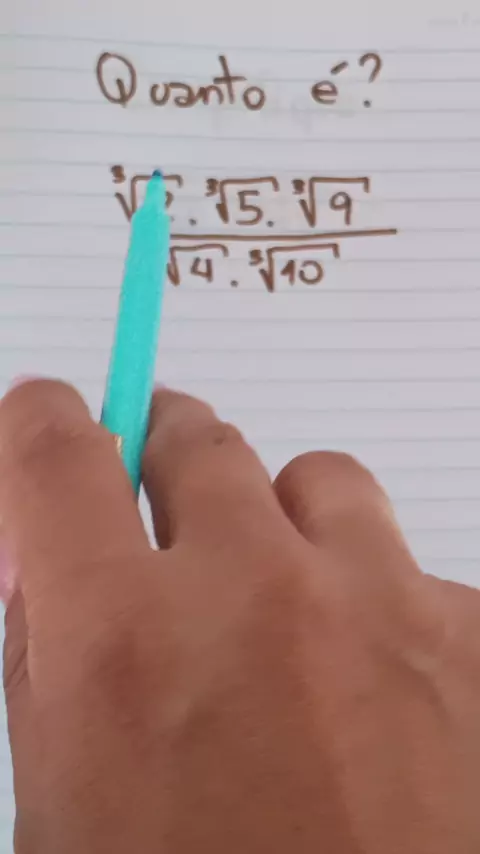 Quanto é?
³√ . ³√5 . ³√9
√4 . ³√10